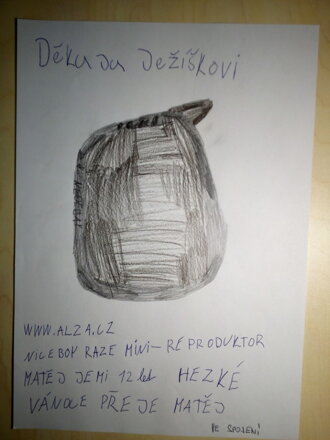 Děkuju Ježíškovi
WWW.ALZA.CZ
NICEBOY RAZE MINI-REPRODUKTOR
MATĚJ JE MI 12 let HEZKÉ
VÁNOCE PŘEJE MATĚJ